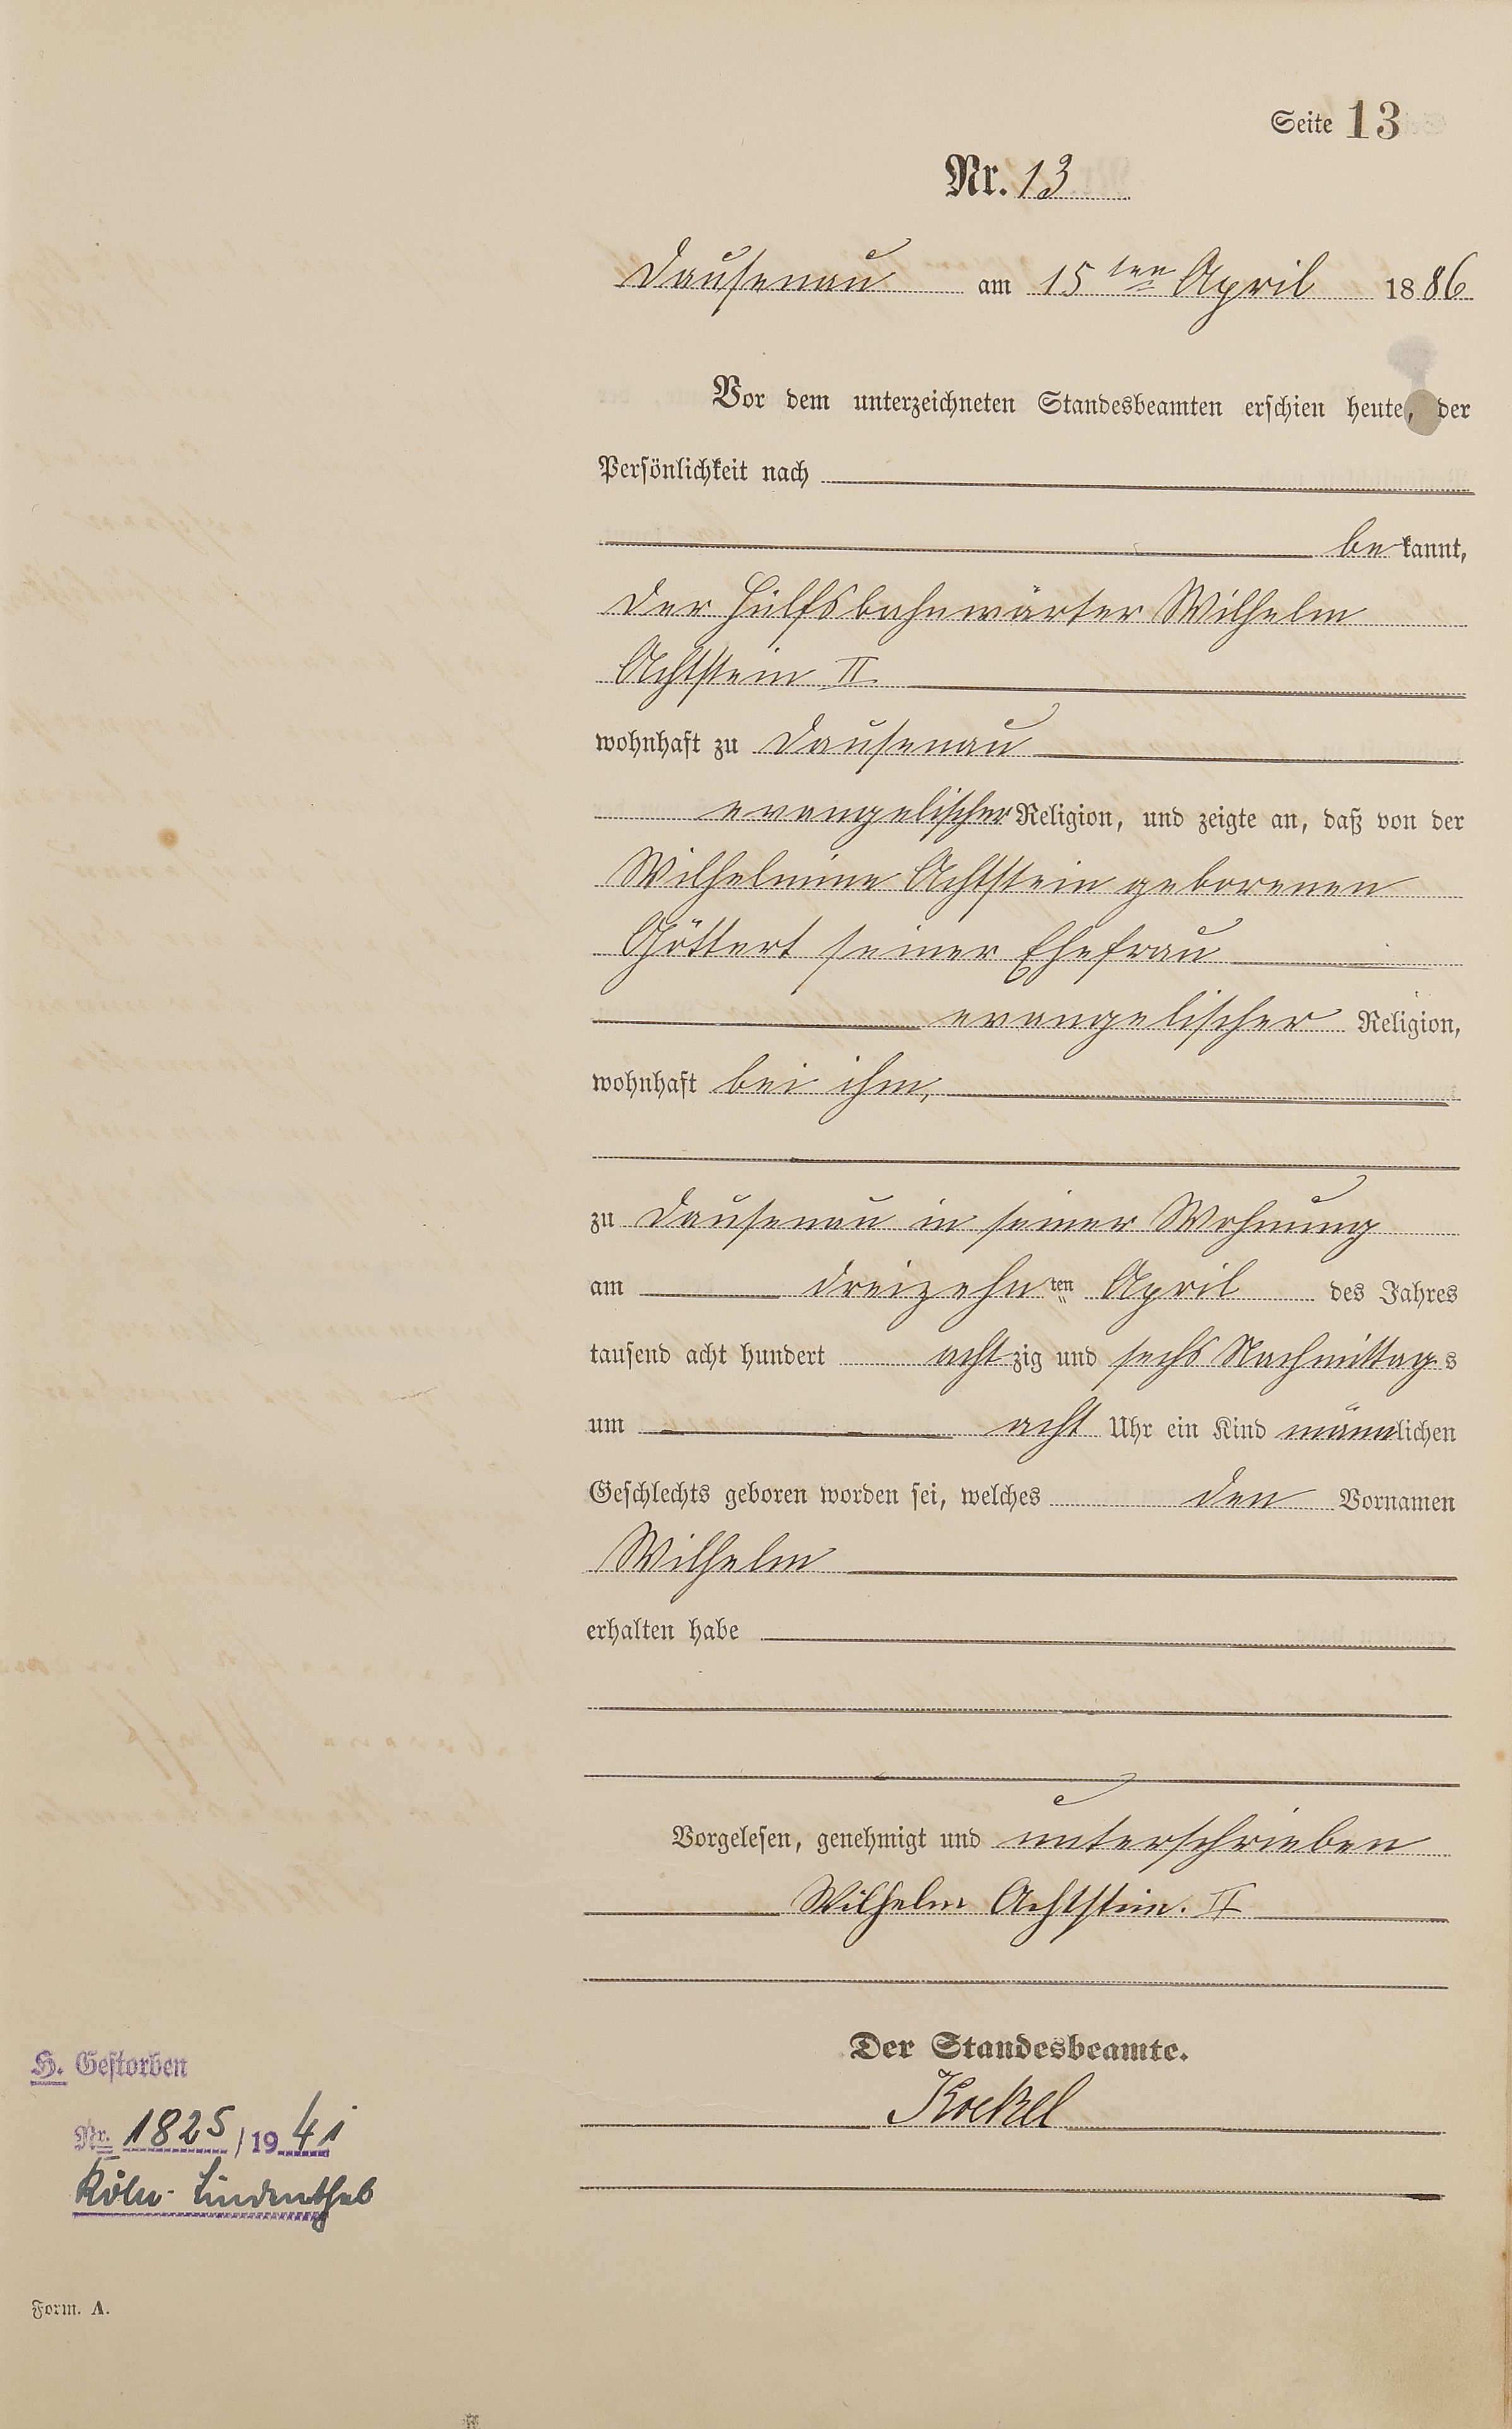 Seite 13
Nr. 13
Dausenau am 15ten April 1886
Vor dem unterzeichneten Standesbeamten erschien heute, der
Persönlichkeit nach
bekannt,
der Hülfsbahnwärter Wilhelm
Achtstein II
wohnhaft zu Dausenau
evangelischer Religion, und zeigte an, daß von der
Wilhelmine Achtstein geborenen
Göttert seiner Ehefrau
evangelischer Religion,
wohnhaft bei ihm,
zu Dausenau in seiner Wohnung
am dreizehnten April des Jahres
tausend acht hundert achtzig und sechs Nachmittags
um acht Uhr ein Kind männlichen
Geschlechts geboren worden sei, welches den Vornamen
Wilhelm
erhalten habe
Vorgelesen, genehmigt und unterschrieben
Wilhelm Achtstein. II
Der Standesbeamte.
H. Gestorben
Nr. 1825/1941
Köln-Lindenthal
Form. A.